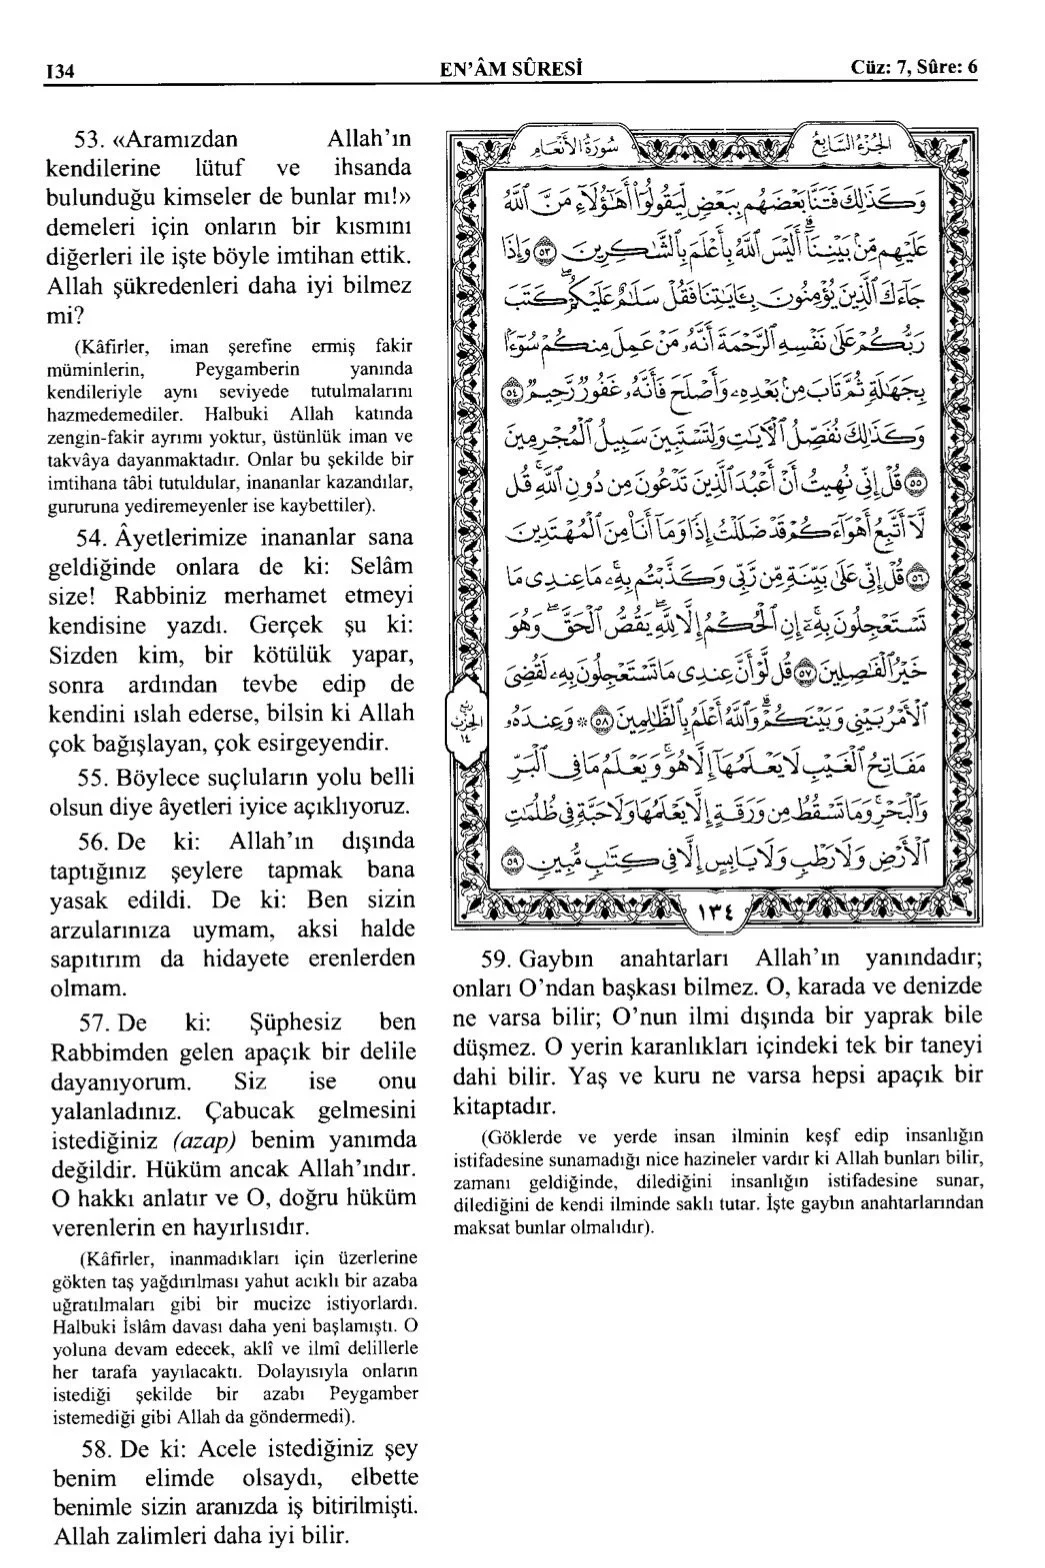 134
EN'ÂM SÛRESİ
Cüz: 7, Sûre: 6
53. «Aramızdan Allah'ın
kendilerine lütuf ve ihsanda
bulunduğu kimseler de bunlar mı!»
demeleri için onların bir kısmını
diğerleri ile işte böyle imtihan ettik.
Allah şükredenleri daha iyi bilmez
mi?
(Kâfirler, iman şerefine ermiş fakir
müminlerin, Peygamberin yanında
kendileriyle aynı seviyede tutulmalarını
hazmedemediler. Halbuki Allah katında
zengin-fakir ayrımı yoktur, üstünlük iman ve
takvâya dayanmaktadır. Onlar bu şekilde bir
imtihana tâbi tutuldular, inananlar kazandılar,
gururuna yediremeyenler ise kaybettiler).
54. Âyetlerimize inananlar sana
geldiğinde onlara de ki: Selâm
size! Rabbiniz merhamet etmeyi
kendisine yazdı. Gerçek şu ki:
Sizden kim, bir kötülük yapar,
sonra ardından tevbe edip de
kendini ıslah ederse, bilsin ki Allah
çok bağışlayan, çok esirgeyendir.
55. Böylece suçluların yolu belli
olsun diye âyetleri iyice açıklıyoruz.
56. De ki: Allah'ın dışında
taptığınız şeylere tapmak bana
yasak edildi. De ki: Ben sizin
arzularınıza uymam, aksi halde
sapıtırım da hidayete erenlerden
olmam.
57. De ki: Şüphesiz ben
Rabbimden gelen apaçık bir delile
dayanıyorum. Siz ise onu
yalanladınız. Çabucak gelmesini
istediğiniz (azap) benim yanımda
değildir. Hüküm ancak Allah'ındır.
O hakkı anlatır ve O, doğru hüküm
verenlerin en hayırlısıdır.
(Kâfirler, inanmadıkları için üzerlerine
gökten taş yağdırılması yahut acıklı bir azaba
uğratılmaları gibi bir mucize istiyorlardı.
Halbuki İslâm davası daha yeni başlamıştı. O
yoluna devam edecek, aklî ve ilmî delillerle
her tarafa yayılacaktı. Dolayısıyla onların
istediği şekilde bir azabı Peygamber
istemediği gibi Allah da göndermedi).
58. De ki: Acele istediğiniz şey
benim elimde olsaydı, elbette
benimle sizin aranızda iş bitirilmişti.
Allah zalimleri daha iyi bilir.
الجزء السابع
سورة الأنعام
وَكَذَٰلِكَ فَتَنَّا بَعْضَهُم بِبَعْضٍ لِّيَقُولُوٓا۟ أَهَٰٓؤُلَآءِ مَنَّ ٱللَّهُ
عَلَيْهِم مِّنۢ بَيْنِنَآ ۗ أَلَيْسَ ٱللَّهُ بِأَعْلَمَ بِٱلشَّٰكِرِينَ ٥٣ وَإِذَا
جَآءَكَ ٱلَّذِينَ يُؤْمِنُونَ بِـَٔايَٰتِنَا فَقُلْ سَلَٰمٌ عَلَيْكُمْ ۖ كَتَبَ
رَبُّكُمْ عَلَىٰ نَفْسِهِ ٱلرَّحْمَةَ ۖ أَنَّهُۥ مَنْ عَمِلَ مِنكُمْ سُوٓءًۢا
بِجَهَٰلَةٍ ثُمَّ تَابَ مِنۢ بَعْدِهِۦ وَأَصْلَحَ فَأَنَّهُۥ غَفُورٌ رَّحِيمٌ ٥٤
وَكَذَٰلِكَ نُفَصِّلُ ٱلْـَٔايَٰتِ وَلِتَسْتَبِينَ سَبِيلُ ٱلْمُجْرِمِينَ
٥٥ قُلْ إِنِّى نُهِيتُ أَنْ أَعْبُدَ ٱلَّذِينَ تَدْعُونَ مِن دُونِ ٱللَّهِ ۚ قُل
لَّآ أَتَّبِعُ أَهْوَآءَكُمْ ۙ قَدْ ضَلَلْتُ إِذًا وَمَآ أَنَا۠ مِنَ ٱلْمُهْتَدِينَ
٥٦ قُلْ إِنِّى عَلَىٰ بَيِّنَةٍ مِّن رَّبِّى وَكَذَّبْتُم بِهِۦ ۚ مَا عِندِى مَا
تَسْتَعْجِلُونَ بِهِۦٓ ۚ إِنِ ٱلْحُكْمُ إِلَّا لِلَّهِ ۖ يَقُصُّ ٱلْحَقَّ ۖ وَهُوَ
خَيْرُ ٱلْفَٰصِلِينَ ٥٧ قُل لَّوْ أَنَّ عِندِى مَا تَسْتَعْجِلُونَ بِهِۦ لَقُضِىَ
ٱلْأَمْرُ بَيْنِى وَبَيْنَكُمْ ۗ وَٱللَّهُ أَعْلَمُ بِٱلظَّٰلِمِينَ ٥٨ * وَعِندَهُۥ
مَفَاتِحُ ٱلْغَيْبِ لَا يَعْلَمُهَآ إِلَّا هُوَ ۚ وَيَعْلَمُ مَا فِى ٱلْبَرِّ
وَٱلْبَحْرِ ۚ وَمَا تَسْقُطُ مِن وَرَقَةٍ إِلَّا يَعْلَمُهَا وَلَا حَبَّةٍ فِى ظُلُمَٰتِ
ٱلْأَرْضِ وَلَا رَطْبٍ وَلَا يَابِسٍ إِلَّا فِى كِتَٰبٍ مُّبِينٍ ٥٩
ربع
الحزب
١٤
١٣٤
59. Gaybın anahtarları Allah'ın yanındadır;
onları O'ndan başkası bilmez. O, karada ve denizde
ne varsa bilir; O'nun ilmi dışında bir yaprak bile
düşmez. O yerin karanlıkları içindeki tek bir taneyi
dahi bilir. Yaş ve kuru ne varsa hepsi apaçık bir
kitaptadır.
(Göklerde ve yerde insan ilminin keşf edip insanlığın
istifadesine sunamadığı nice hazineler vardır ki Allah bunları bilir,
zamanı geldiğinde, dilediğini insanlığın istifadesine sunar,
dilediğini de kendi ilminde saklı tutar. İşte gaybın anahtarlarından
maksat bunlar olmalıdır).